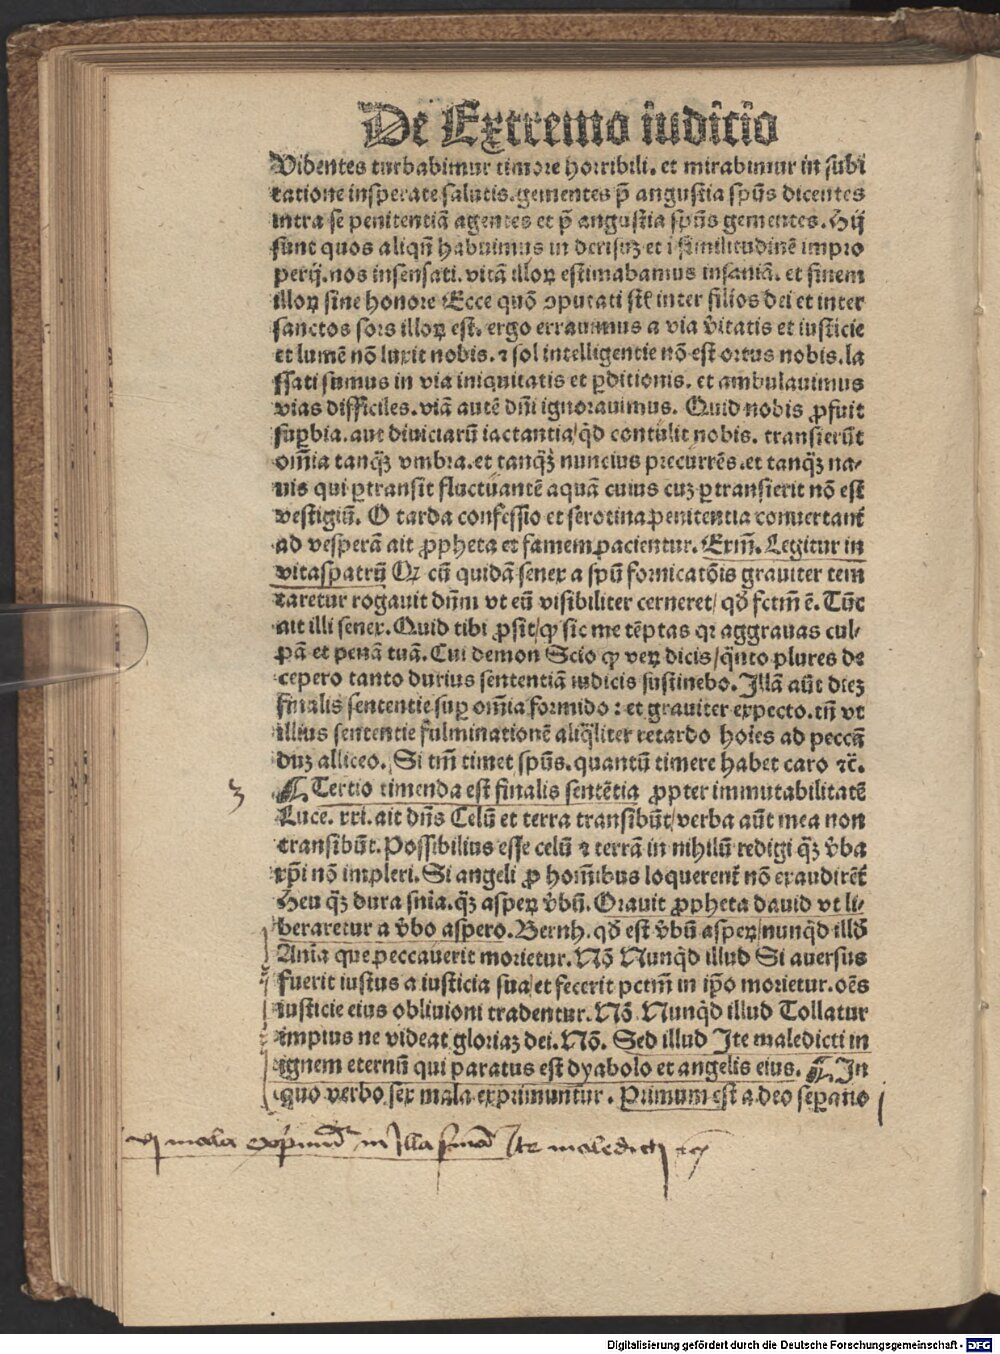 De Extremo iudicio
Videntes turbabimur timore horribili. et mirabimur in subi
tatione insperate salutis. gementes p̄ angustia spūs dicentes
intra se penitentiā agentes et p̄ angustia spūs gementes. Hij
sunt quos aliqn̄ habuimus in derisuꝫ et i similitudinē impro
perij. nos insensati. vitā illoꝝ estimabamus insaniā. et finem
illoꝝ sine honore Ecce quō ↄputati st̄ inter filios dei et inter
sanctos sors illoꝝ est. ergo errauimus a via v̄itatis et iusticie
et lumē nō luxit nobis. ⁊ sol intelligentie nō est ortus nobis. la
ssati sumus in via iniquitatis et ꝑditionis. et ambulauimus
vias difficiles. viā autē dn̄i ignorauimus. Quid nobis ꝓfuit
suꝑbia. aut diuiciarū iactantia/qd̄ contulit nobis. transierūt
om̄ia tanqꝫ̄ vmbra. et tanqꝫ̄ nuncius precurrēs. et tanqꝫ̄ na⸗
uis qui ꝑtransit fluctuantē aquā cuius cuꝫ ꝑtransierit nō est
vestigiū. O tarda confessio et serotina penitentia conuertant̄
ad vesperā ait ꝓpheta et famem pacientur. Exm̄. Legitur in
vitaspatrū Qꝝ cū quidā senex a spū fornicatōis grauiter tem
taretur rogauit dn̄m vt eū visibiliter cerneret/ qd̄ fctm̄ ē. Tūc
ait illi senex. Quid tibi ꝓsit/ꝙ sic me tēptas qꝛ aggrauas cul⸗
pā et penā tuā. Cui demon Scio ꝙ veꝝ dicis/q̄nto plures de
cepero tanto durius sententiā iudicis sustinebo. Illā aūt dieꝫ
finalis sententie suꝑ om̄ia formido: et grauiter expecto. tn̄ vt
illius sententie fulminationē aliq̄liter retardo hoīes ad peccn̄
duꝫ alliceo. Si tm̄ timet spūs. quantū timere habet caro ⁊c̄.
3
¶ Tertio timenda est finalis sentētia ꝓpter immutabilitatē
Luce. xxi. ait dn̄s Celū et terra transibūt/verba aūt mea non
transibūt. Possibilius esse celū ⁊ terrā in nihilū redigi qꝫ̄ v̄ba
xp̄i nō impleri. Si angeli ꝓ hom̄ibus loquerent̄ nō exaudirēt̄
Heu qꝫ̄ dura sn̄ia. qꝫ̄ aspeꝝ v̄bū. Orauit ꝓpheta dauid vt li⸗
beraretur a v̄bo aspero. Bernh. qd̄ est v̄bū aspeꝝ/nunqd̄ illd̄
Anīa que peccauerit morietur. Nō Nunqd̄ illud Si auersus
fuerit iustus a iusticia sua/et fecerit pctm̄ in ip̄o morietur. oēs
iusticie eius obliuioni tradentur. Nō Nunqd̄ illud Tollatur
impius ne videat gloriaꝫ dei. Nō. Sed illud Ite maledicti in
ignem eternū qui paratus est dyabolo et angelis eius. ¶ In
quo verbo sex mala exprimuntur. Primum est a deo sepatio
vj mala exprimunt̄ in illa sn̄ia Ite maledicti ⁊c
Digitalisierung gefördert durch die Deutsche Forschungsgemeinschaft - DFG